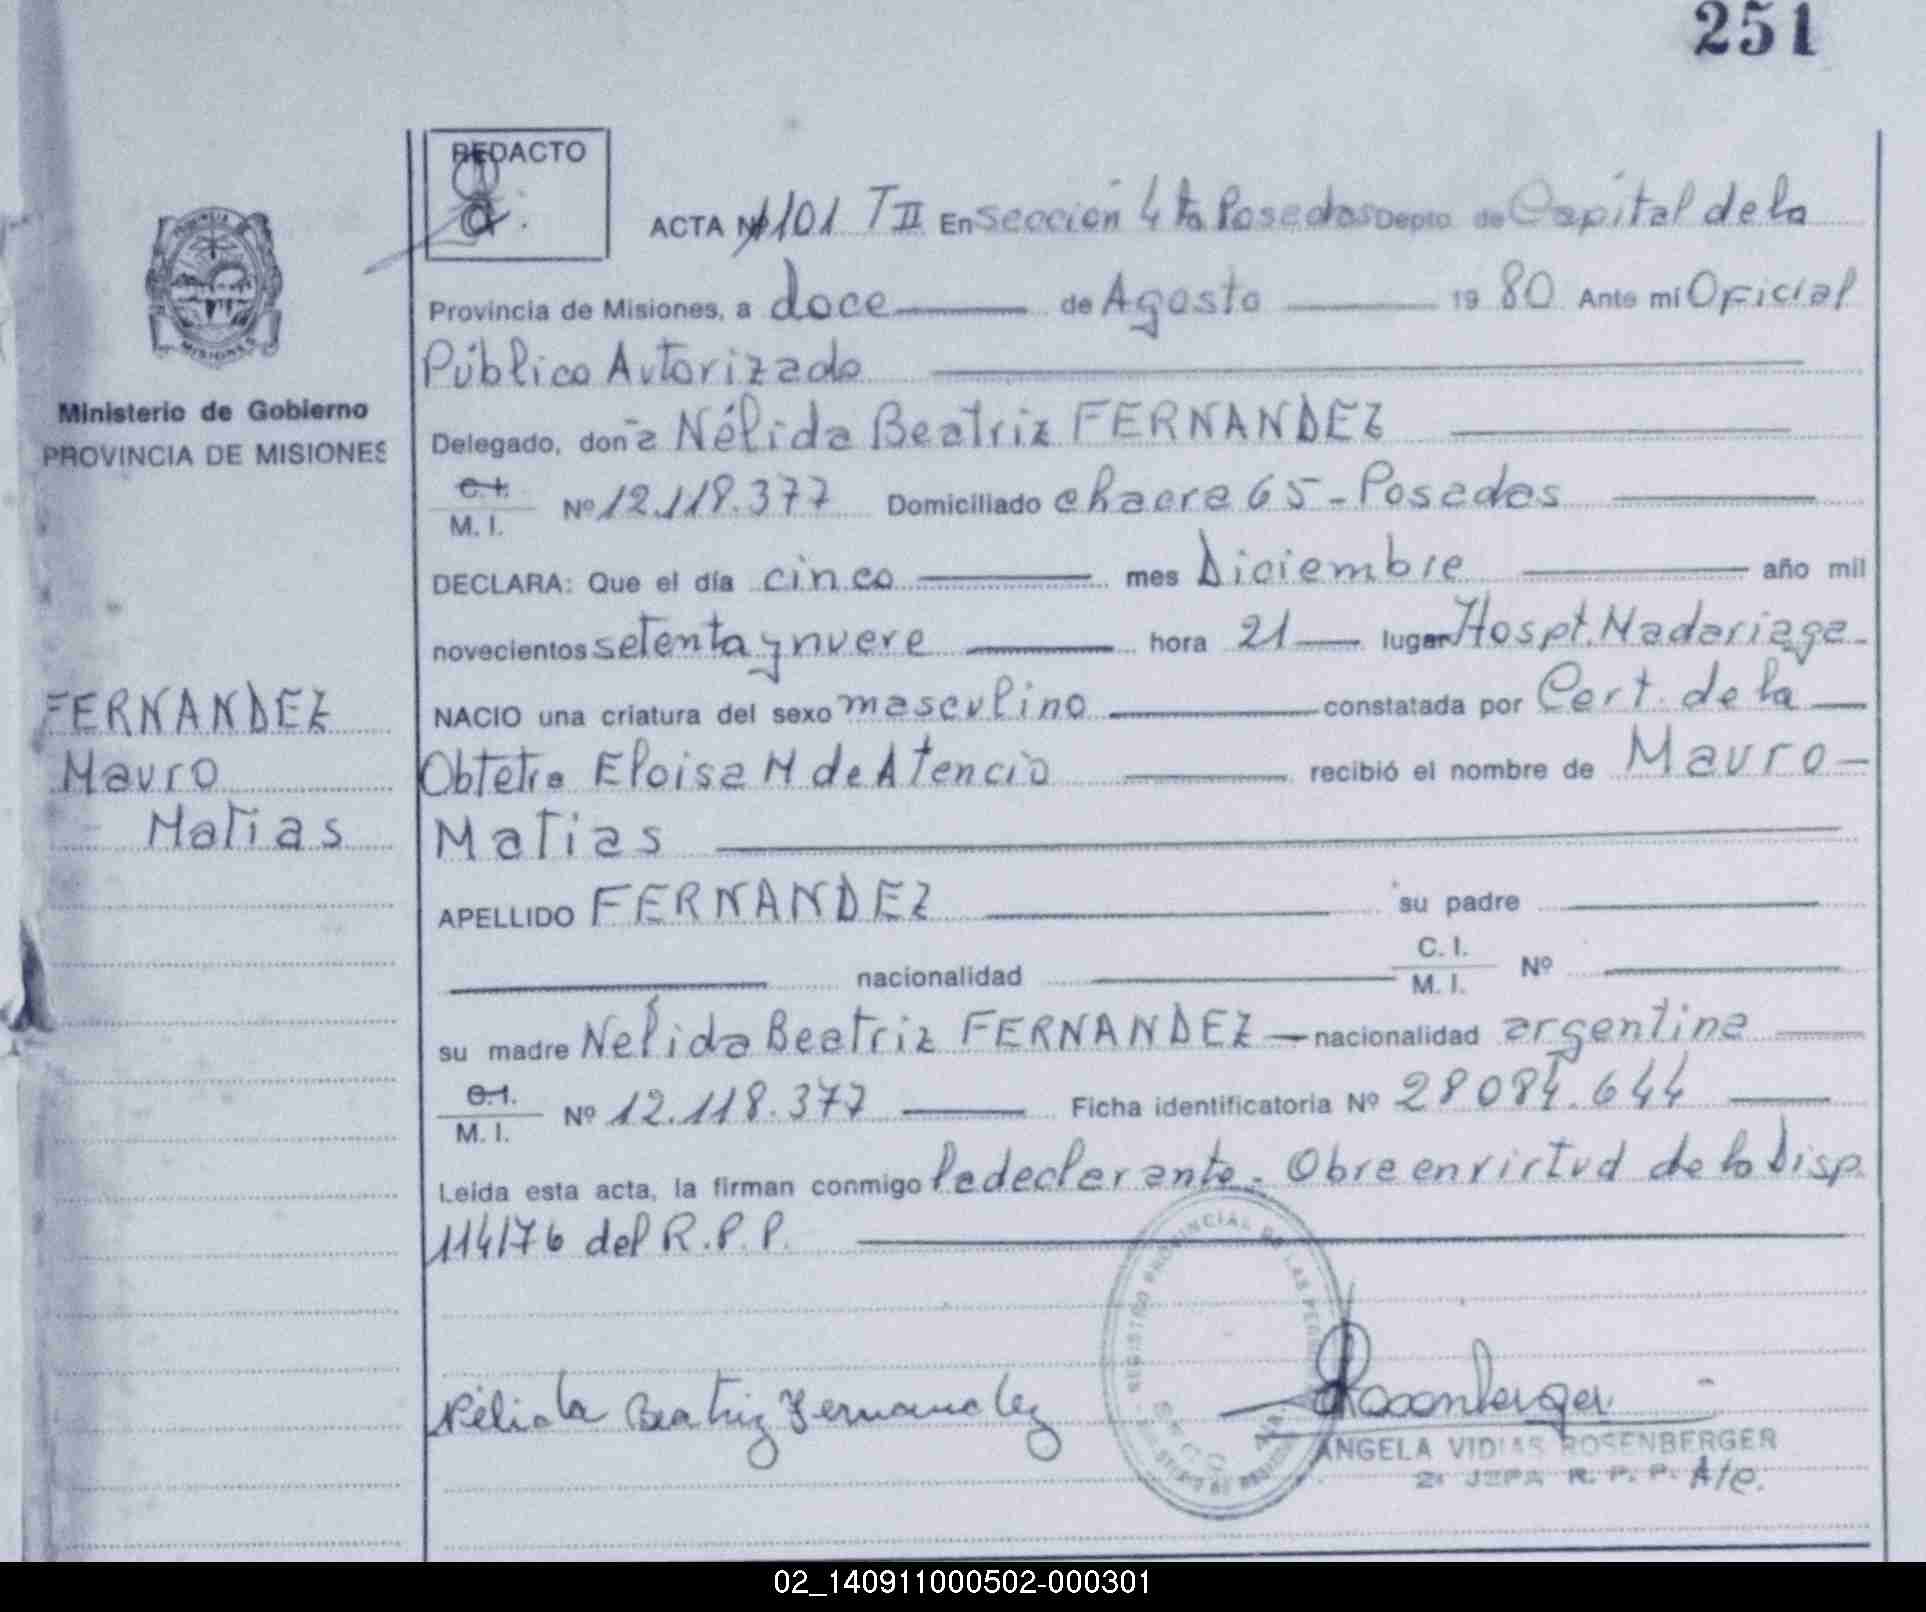 251
REDACTO
ACTA Nº 1101 T II En sección 4 ta Posadas Depto. de Capital de la
Provincia de Misiones, a doce de Agosto 19 80 Ante mi Oficial
Público Autorizado
Ministerio de Gobierno
PROVINCIA DE MISIONES
Delegado, don a Nélida Beatriz FERNANDEZ
C. I.
M. I. Nº 12.118.377 Domiciliado chacra 65 - Posadas
DECLARA: Que el día cinco mes Diciembre año mil
novecientos setenta y nueve hora 21 lugar Hospt. Madariaga
FERNANDEZ
Mauro
Matias
NACIO una criatura del sexo masculino constatada por Cert. de la
Obtetra Eloisa M de Atencio recibió el nombre de Mauro
Matias
APELLIDO FERNANDEZ su padre
nacionalidad C. I. M. I. Nº
su madre Nélida Beatriz FERNANDEZ nacionalidad argentina
C. I.
M. I. Nº 12.118.377 Ficha identificatoria Nº 28084.644
Leida esta acta, la firman conmigo la declarante. Obra en virtud de la Disp.
114/76 del R.P.P.
REGISTRO PROVINCIAL DE LAS
Nélida Beatriz Fernandez
Rosenberger
ANGELA VIDIAS ROSENBERGER
2ª JEFA R. P. P. A/C.
02_140911000502-000301